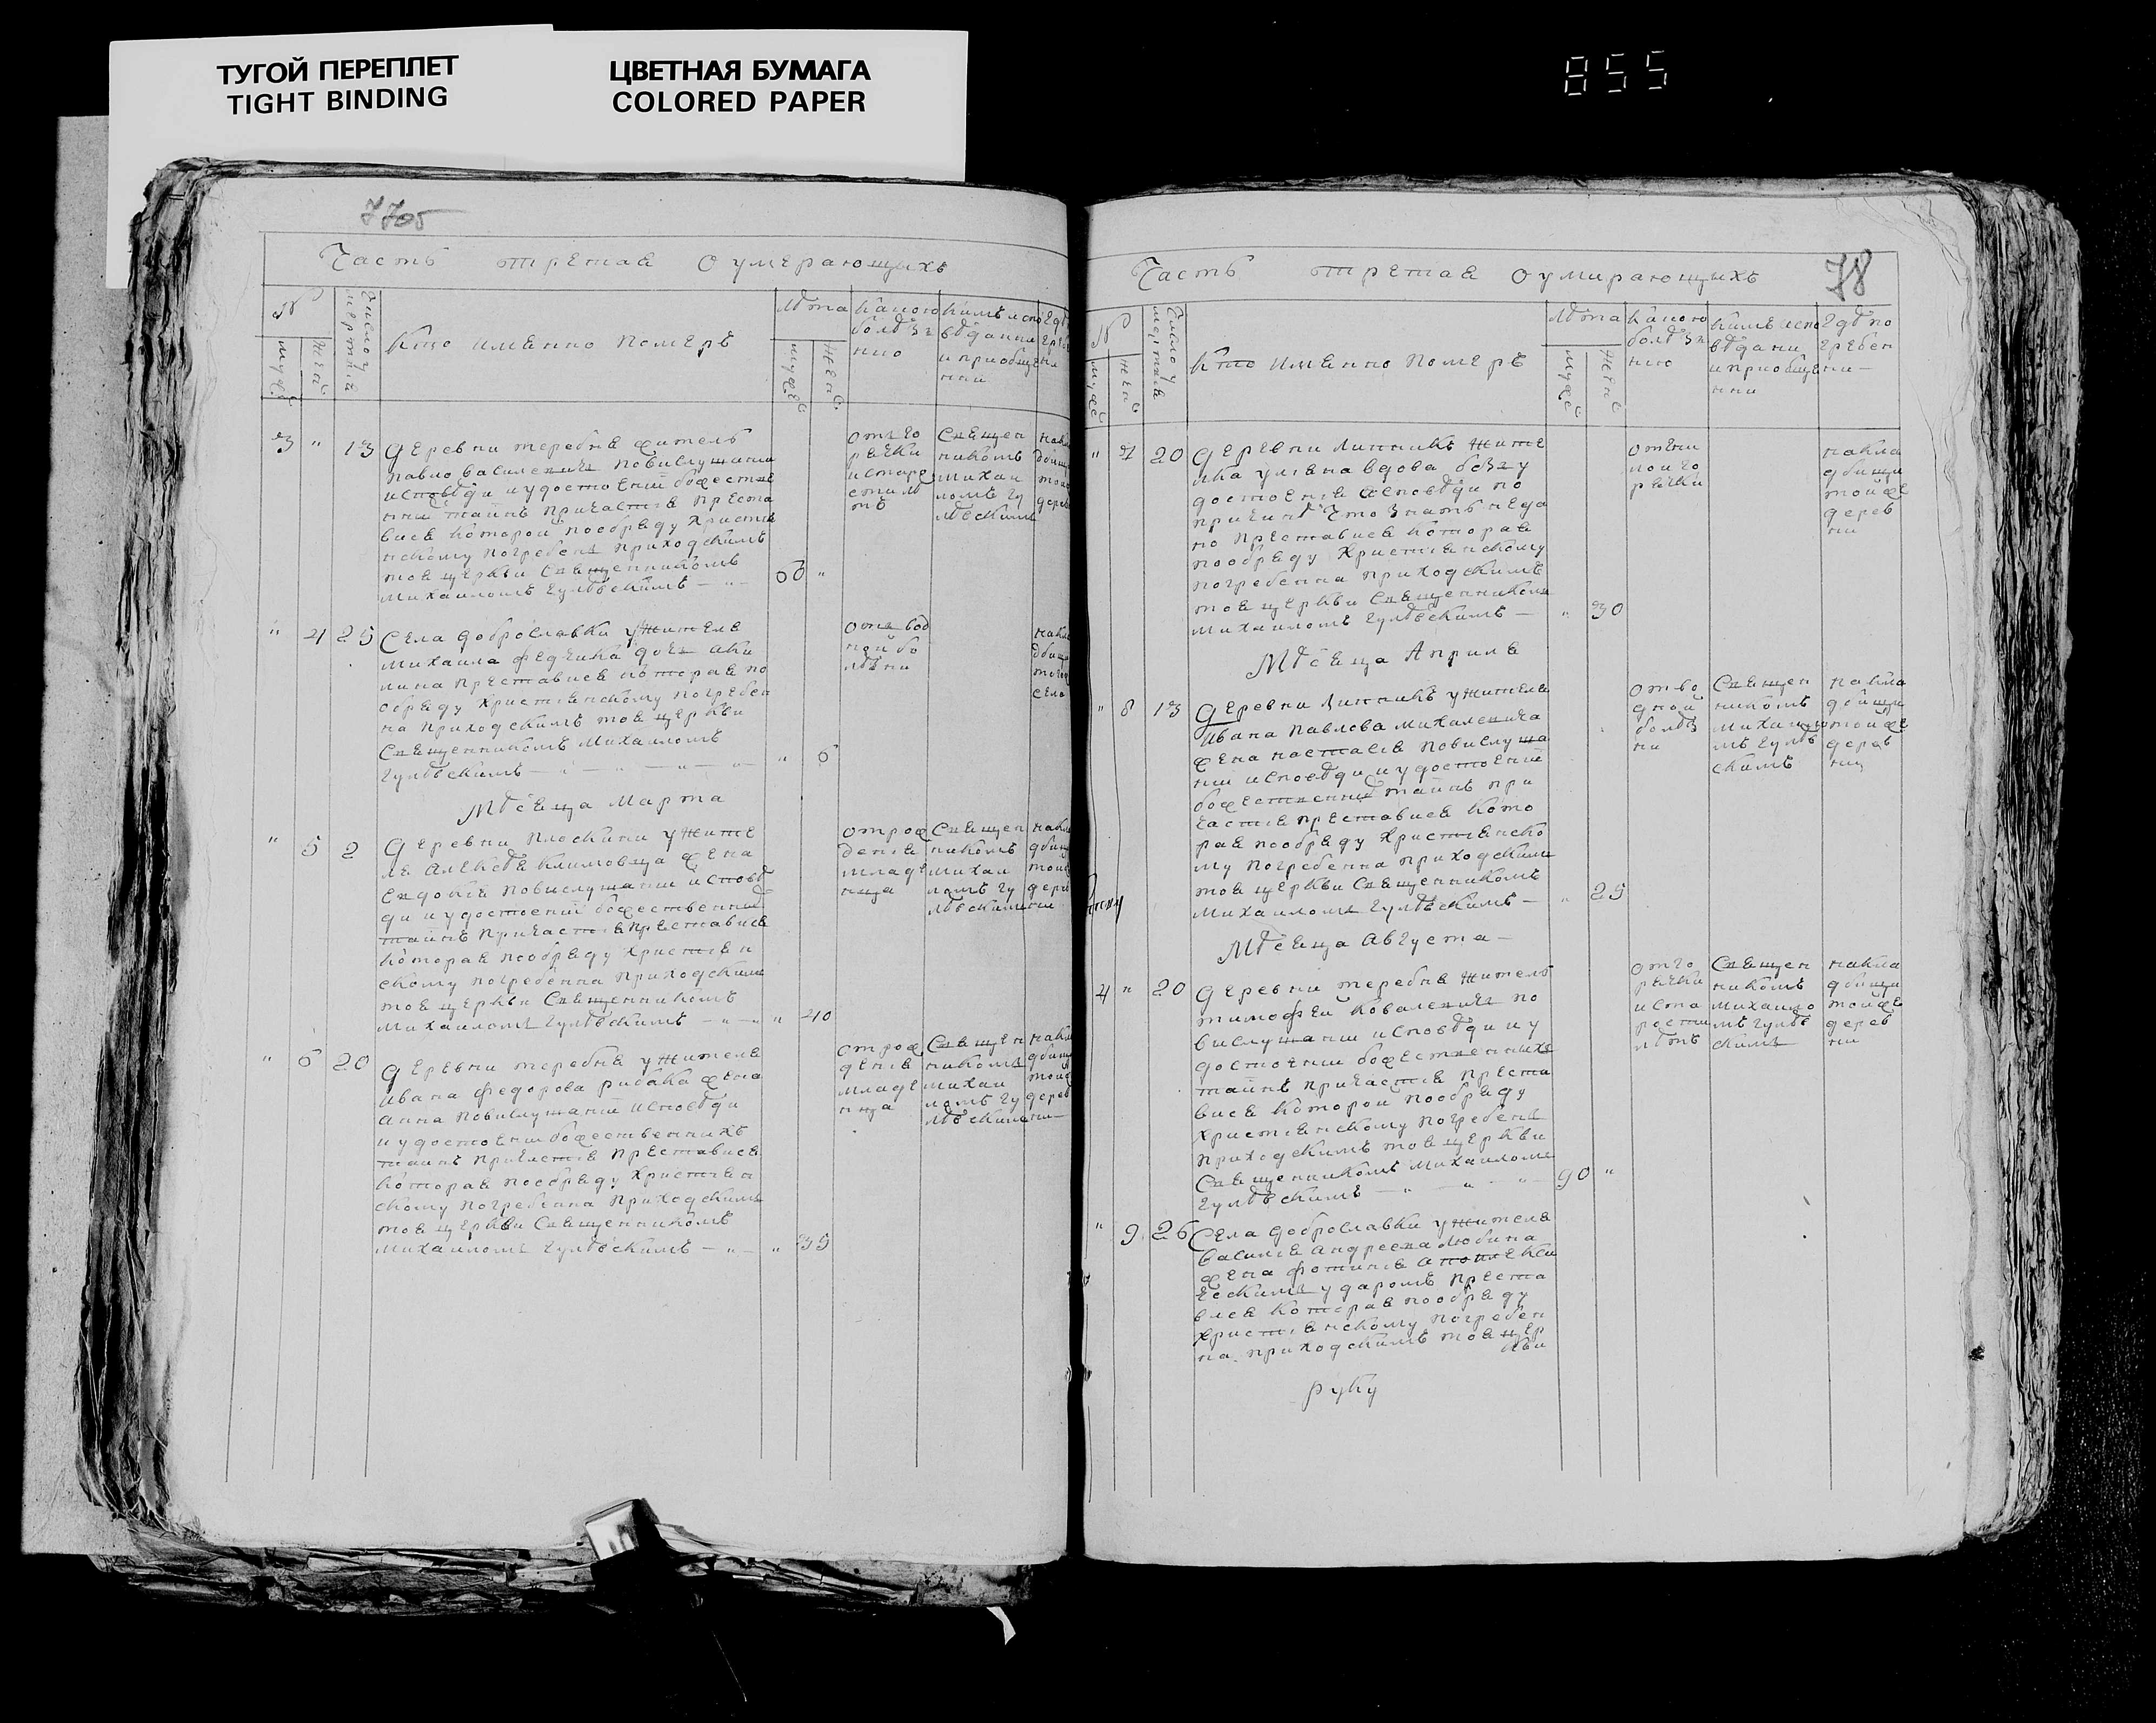 ТУГОЙ ПЕРЕПЛЕТ
TIGHT BINDING
ЦВЕТНАЯ БУМАГА
COLORED PAPER
855
Часть третая о умерающихъ
№
Число умертия
Кто именно померъ
Лѣта
Какою болѣзнию
мужеска
женска
3 " 13 Деревни теребня житель
Павло Василевичъ по вислушании
исповѣди и удостоений божестве
нни таинъ причастия преста
вися которой по обряду христия
нскому погребенъ приходскимъ
тоя церкви Священникомъ
Михаиломъ Гулѣвскимъ — " —
от го
рячки
и старо
сти лѣ
тъ
Священ
никомъ
Михаи
ломъ Гу
лѣвскимъ
" 4 25 Села доброславки у жителя
Михаила Федчика дочь Аки
лина преставися которая по
обряду християнскому погребен
на приходскимъ тоя церкви
Священникомъ Михаиломъ
Гулѣвскимъ — " — " — " — " 6
от вод
ной бо
лѣзни
Мѣсяца Марта
" 5 2 Деревни Плоскини у жите
ля Алексѣя Климовца жена
Евдокия по вислушании исповѣ
ди и удостоении божественни
таинъ причастия преставися
которая по обряду християн
скому погребенна приходскимъ
тоя церкви Священникомъ
Михаиломъ Гулѣвскимъ — " — " 40
от рож
дения
младе
нца
Священ
никомъ
Михаи
ломъ Гу
лѣвскимъ
" 6 20 Деревни теребня у жителя
Ивана Федорова рибака жена
Анна по вислушании исповѣди
и удостоении божественнихъ
таинъ причастия преставися
которая по обряду християн
скому погребенна приходскимъ
тоя церкви Священникомъ
Михаиломъ Гулѣвскимъ — " — " 35
от рож
дения
младе
нца
Священ
никомъ
Михаи
ломъ Гу
лѣвскимъ
78
Часть третая о умирающихъ
№
Число умертия
Кто именно померъ
Лѣта
Какою болѣзнию
Кимъ исповѣдани и приобщенни
Гдѣ погребенни —
мужеска
женска
" 7 20 Деревни Линникъ жите
лка Улияна вдова без у
достоения исповѣди по
причинѣ что знать не да
но преставися которая
по обряду християнскому
погребенна приходскимъ
тоя церкви Священникомъ
Михаиломъ Гулѣвскимъ — " 30
рячки
на кла
дбищи
той же
дерев
ни
Мѣсяца Априля
" 8 13 Деревни Линникъ у жителя
Ивана Павлова Михалевича
жена Настасия по вислуша
нии исповѣди и удостоении
божественний таинъ при
частия преставися кото
рая по обряду християнско
му погребенна приходскимъ
тоя церкви Священникомъ
Михаиломъ Гулѣвскимъ — " 25
от во
дной
болѣз
ни
Священ
никомъ
Михаило
мъ Гулѣв
скимъ
на кла
дбищи
той же
дерев
ни
Мѣсяца Августа —
4 " 20 Деревни теребня житель
Тимофей Ковалевичъ по
вислушании исповѣди и у
достоении божественнихъ
таинъ причастия преста
вися которой по обряду
християнскому погребенъ
приходскимъ тоя церкви
Священникомъ Михаиломъ
Гулѣвскимъ — " — " — " — 90 "
от го
рячки
и ста
рости
лѣтъ
Священ
никомъ
Михаило
мъ Гулѣв
скимъ
на кла
дбищи
той же
дерев
ни
" 9 26 Села доброславки у жителя
Василия Андреева Любина
жена Фотиния апоплекси
ческимъ ударомъ преста
вися которая по обряду
християнскому погребен
на приходскимъ тоя цер
кви
руку